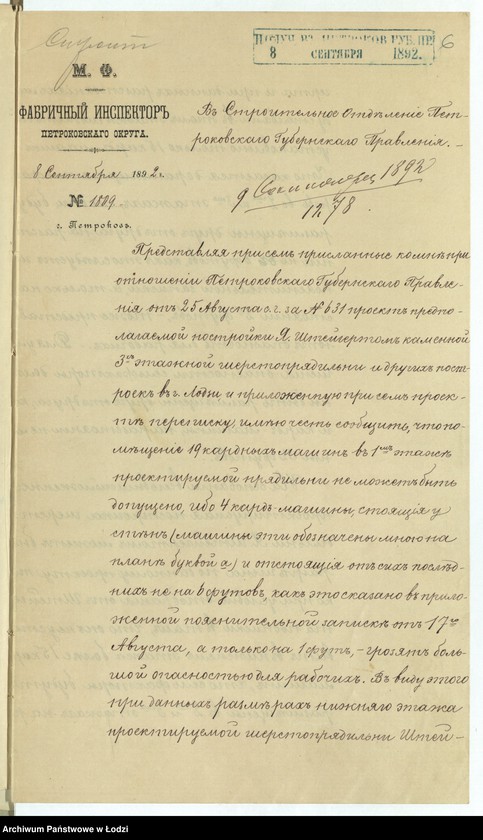 ПОЛУЧ. ИЗ ПЕТРОКОВ. ГУБ. ПР.
8 СЕНТЯБРЯ 1892.
6
М. Ф.
ФАБРИЧНЫЙ ИНСПЕКТОРЪ
ПЕТРОКОВСКАГО ОКРУГА.
8 Сентября 1892 г.
№ 1809.
г. Петроковъ.
Въ Строительное Отдѣленіе Пет-
роковскаго Губернскаго Правленія.
1892
1278.
Представляя при семъ присланные ко мнѣ при
отношеніи Петроковскаго Губернскаго Правле-
нія отъ 25 Августа с. г. за № 631 проектъ предпо-
лагаемой постройки Я. Штейгертомъ каменной
3хъ этажной шерстопрядильни и другихъ пост-
роекъ въ г. Лодзи и приложенную при семъ проек-
тѣ переписку, имѣю честь сообщить, что по-
мѣщеніе 19 кардныхъ машинъ въ 1мъ этажѣ
проектируемой прядильни не можетъ быть
допущено, ибо 4 кардъ-машины, стоящія у
стѣнъ (машины эти обозначены мною на
планѣ буквой а) и отстоящія отъ сихъ послѣд-
нихъ не на 6 футовъ, какъ это сказано въ прило-
женной пояснительной запискѣ отъ 17го
Августа, а только на 1 футъ, – грозятъ боль-
шой опасностью для рабочихъ. Въ виду этого
при данныхъ размѣрахъ нижняго этажа
проектируемой шерстопрядильни Штей-
Archiwum Państwowe w Łodzi